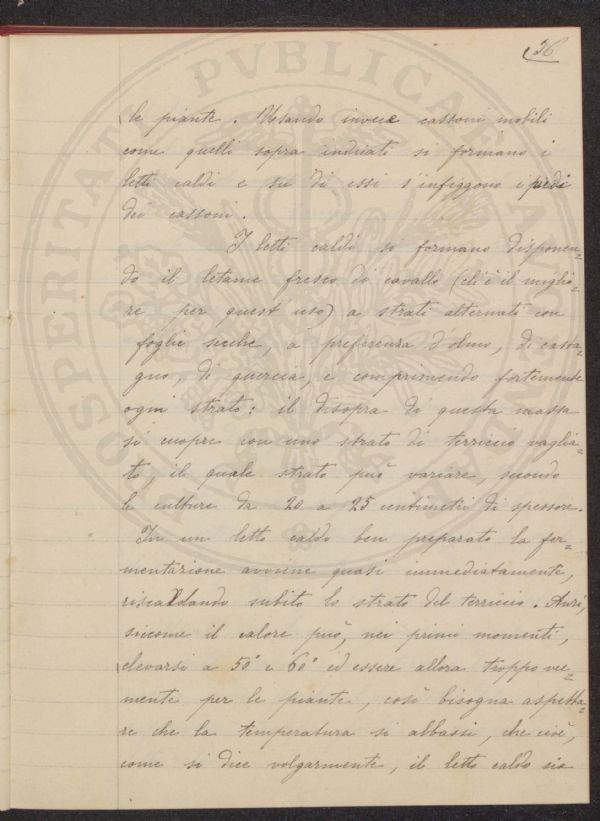 36
le piante. Usando invece cassoni mobili
come quelli sopra indicati si formano i
letti caldi e su di essi s'infiggono i piedi
dei cassoni.
I letti caldi si formano disponen=
do il letame fresco di cavallo (ch'è il miglio=
re per quest'uso) a strati alternati con
foglie secche, a preferenza d'olmo, di casta=
gno, di quercia, e comprimendo fortemente
ogni strato: il disopra di questa massa
si cuopre con uno strato di terriccio vaglia=
to, il quale strato può variare, secondo
le culture da 20 a 25 centimetri di spessore.
In un letto caldo ben preparato la fer=
mentazione avviene quasi immediatamente,
riscaldando subito lo strato del terriccio. Anzi,
siccome il calore può, nei primi momenti,
elevarsi a 50° e 60° ed essere allora troppo vee=
mente per le piante, così bisogna aspetta=
re che la temperatura si abbassi, che cioè,
come si dice volgarmente, il letto caldo sia
PROSPERITATI PVBLICAE